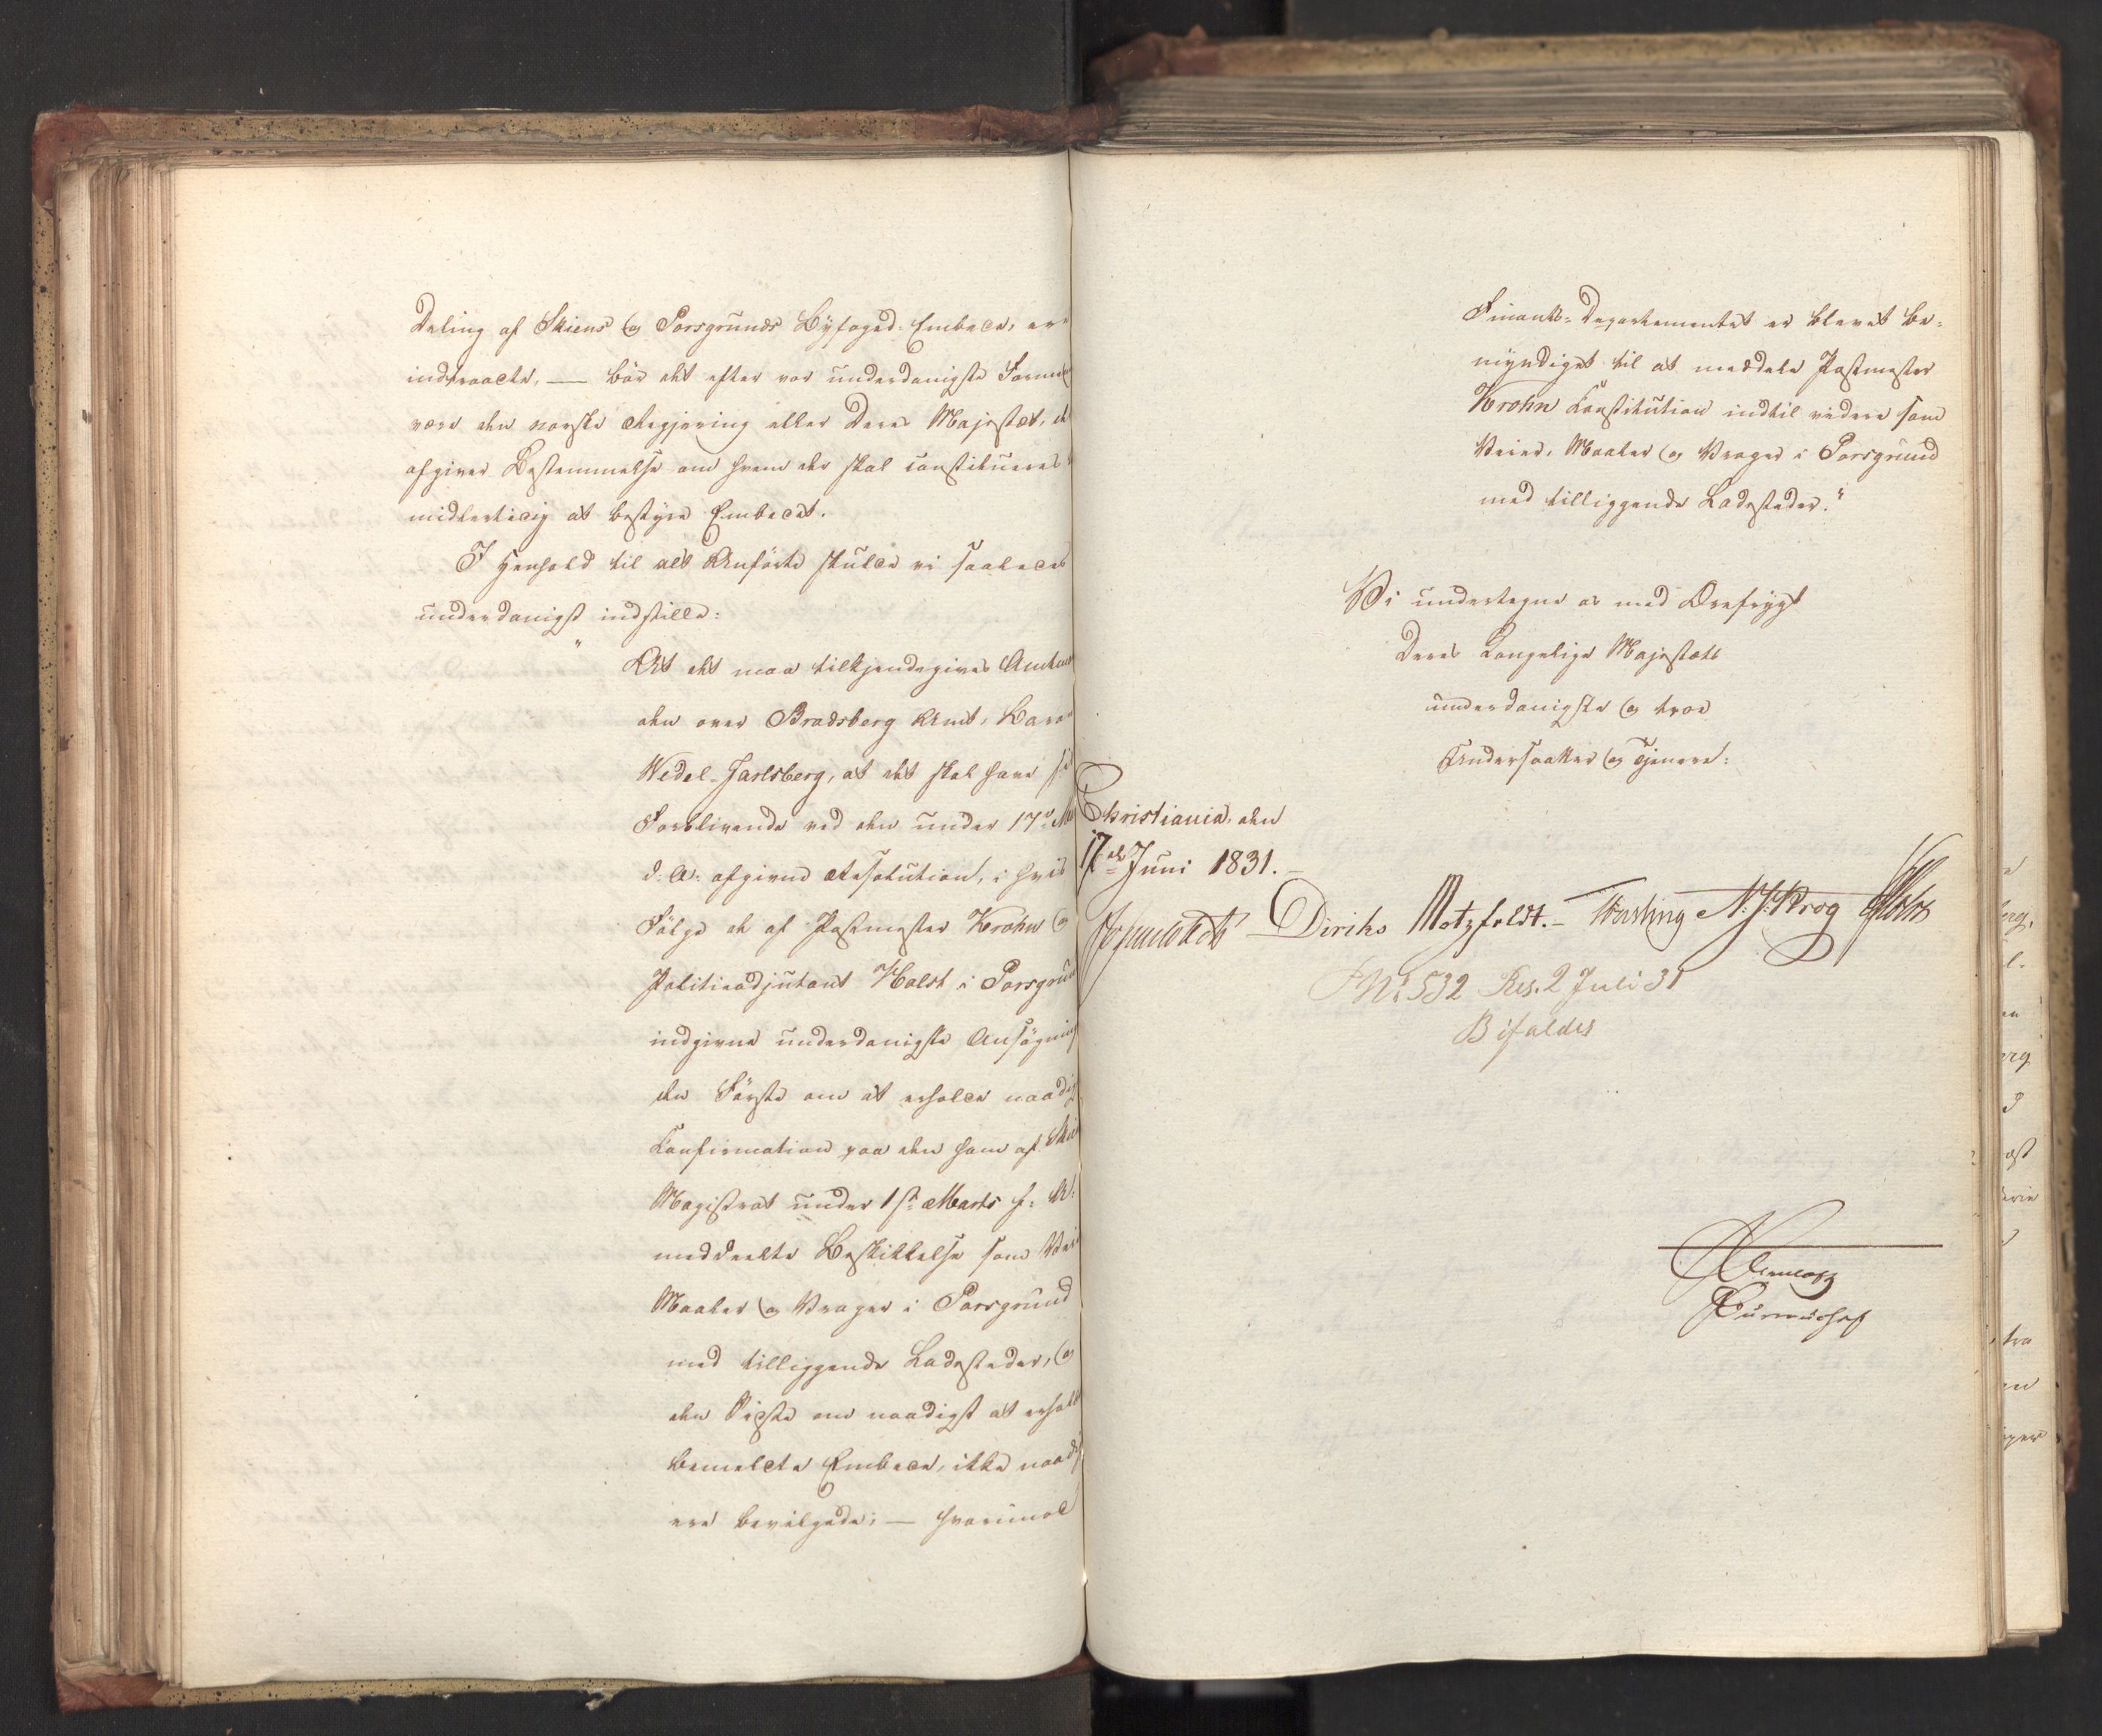 Deling af Skiens og Porsgrunds Byfoged-Embede, ere
indtraadte, — bör det efter vor underdanigste Formeen
være den norske Regjering eller Deres Majestæt, der
afgiver Bestemmelse om hvem der skal constitueres
midlertidig at bestyre Embedet.
I Henhold til alt Anförte skulde vi saaledes
underdanigst indstille:
"At det maa tilkjendegives Amtman
den over Bradsberg Amt, Baron
Wedel-Jarlsberg, at det skal have sit
Forblivende ved den under 17de Mai
d: A: afgivne Resolution, i hvis
Fölge de af Postmester Krohn og
Politieadjutant Holst i Porsgrund
indgivne underdanigste Ansögning
den Förste om at erholde naadigst
Confirmation paa den ham af Skiens
Magistrat under 1ste Marts f: A:
meddeelte Beskikkelse som Veier
Maaler og Vrager i Porsgrund
med tilliggende Ladesteder, og
den Sidste om naadigst at erholde
bemeldte Embede, ikke naadigst
ere bevilgede; — hvorimod
Finants-Departementet er blevet be-
myndiget til at meddele Postmester
Krohn Constitution indtil videre som
Veier, Maaler og Vrager i Porsgrund
med tilliggende Ladesteder."
Vi undertegne os med Ærefrygt
Deres Kongelige Majestæts
underdanigste og troe
Undersaatter og Tjenere:
Christiania, den
17de Juni 1831.
Diriks Motzfeldt. Vosling N.J. Krog Holst
No 532 Res. 2 Juli 31
Bifaldes